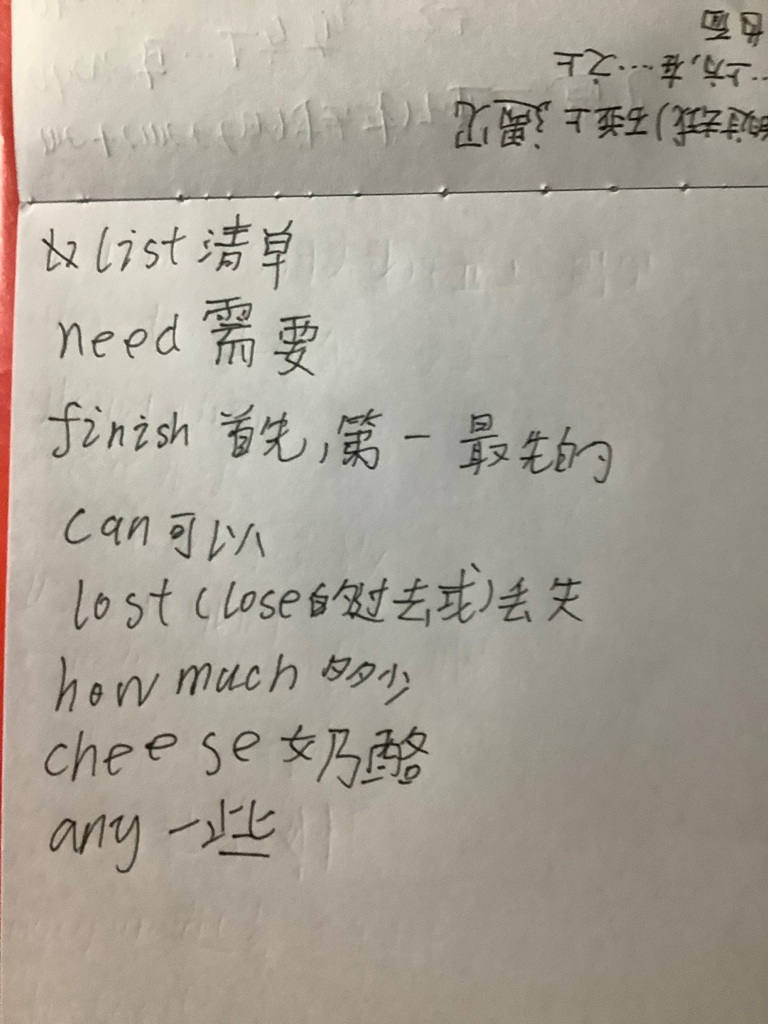 list 清单
need 需要
finish 首先,第一 最先的
can 可以
lost (lose的过去式)丢失
how much 多少
cheese 奶酪
any 一些
遇见
上方,在…之上